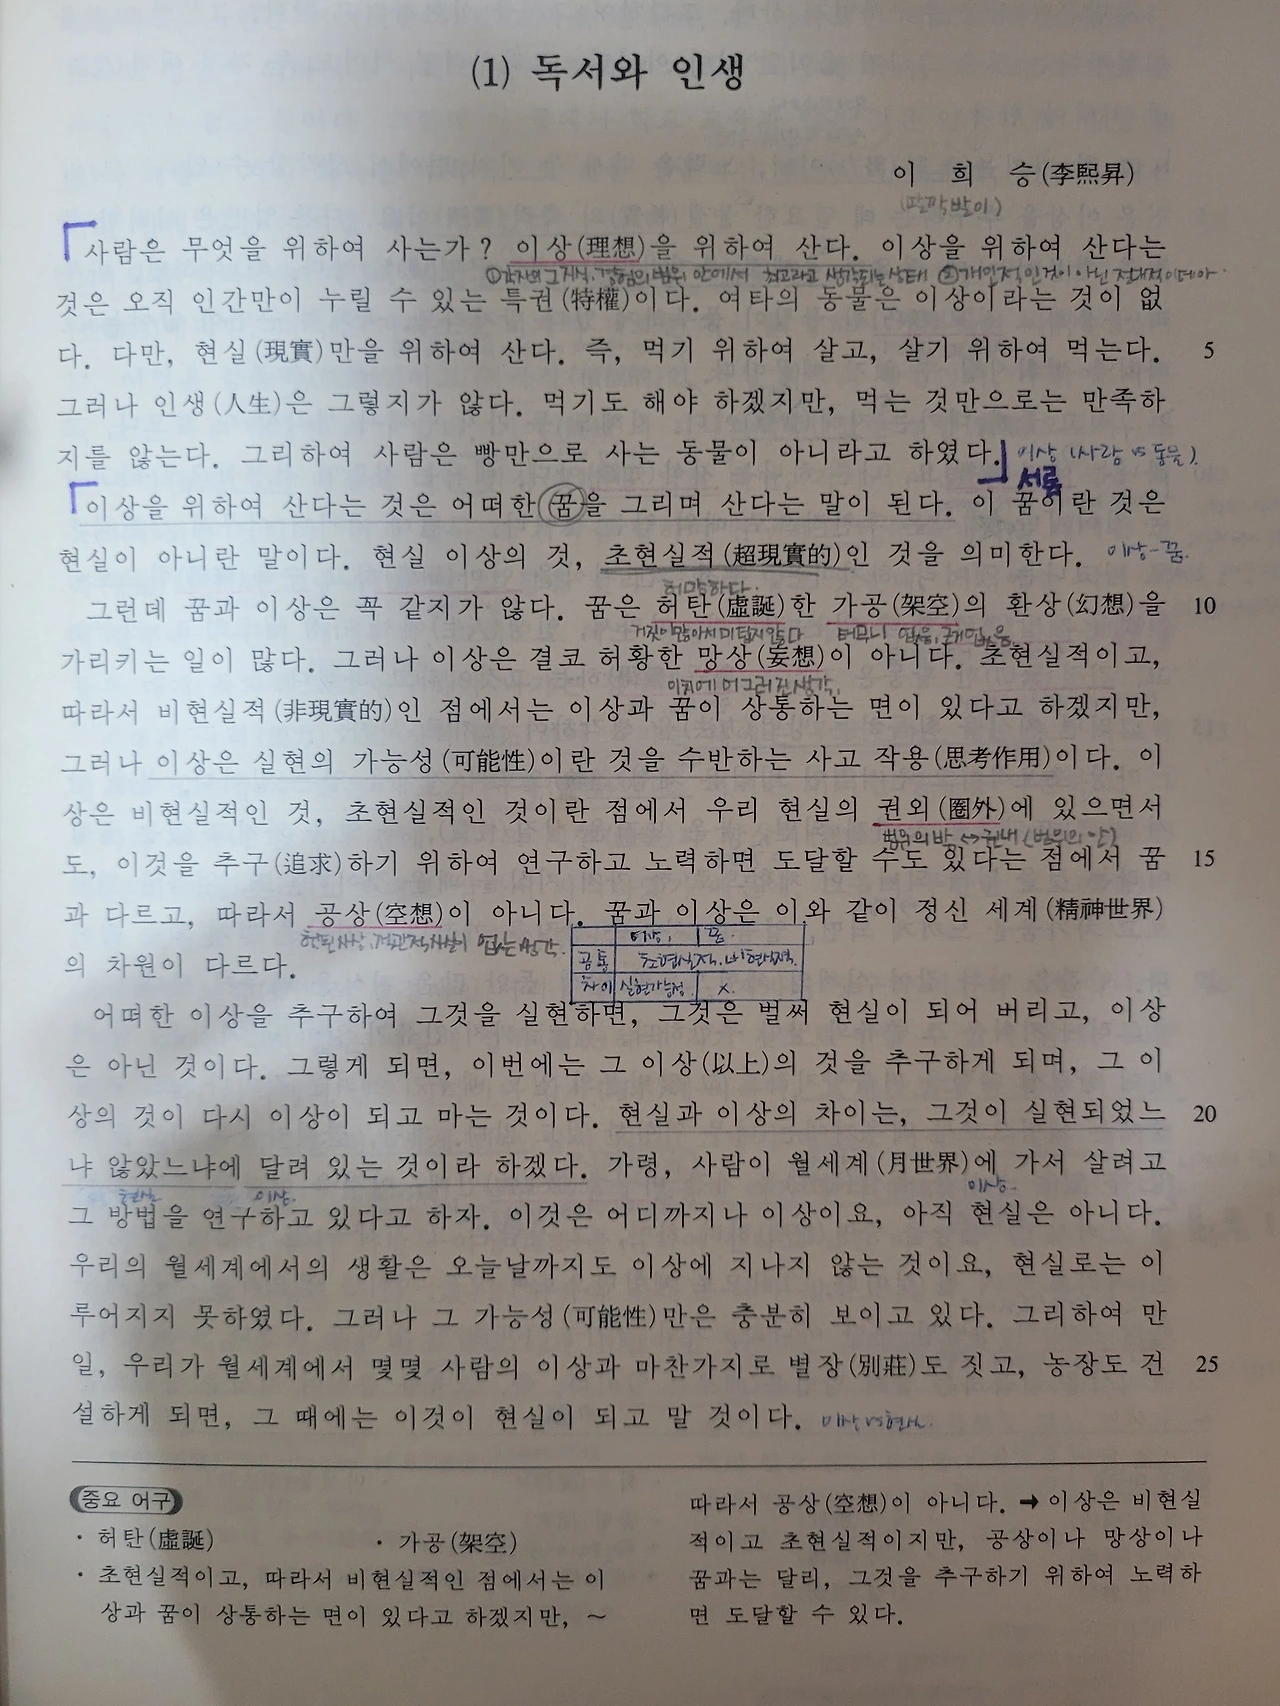 (1) 독서와 인생
이 희 승(李熙昇)
(딸깍발이)
사람은 무엇을 위하여 사는가? 이상(理想)을 위하여 산다. 이상을 위하여 산다는
①각자의 그 지식, 경험의 범위 안에서 최고라고 생각되는 상태 ②개인적인것이 아닌 절대적 이데아.
것은 오직 인간만이 누릴 수 있는 특권(特權)이다. 여타의 동물은 이상이라는 것이 없
다. 다만, 현실(現實)만을 위하여 산다. 즉, 먹기 위하여 살고, 살기 위하여 먹는다. 5
그러나 인생(人生)은 그렇지가 않다. 먹기도 해야 하겠지만, 먹는 것만으로는 만족하
지를 않는다. 그리하여 사람은 빵만으로 사는 동물이 아니라고 하였다. 이상 (사람 vs 동물).
서론
이상을 위하여 산다는 것은 어떠한 꿈을 그리며 산다는 말이 된다. 이 꿈이란 것은
현실이 아니란 말이다. 현실 이상의 것, 초현실적(超現實的)인 것을 의미한다. 이상-꿈.
허망하다.
그런데 꿈과 이상은 꼭 같지가 않다. 꿈은 허탄(虛誕)한 가공(架空)의 환상(幻想)을 10
거짓이많아서 미덥지않다 터무니 없음, 근거없음.
가리키는 일이 많다. 그러나 이상은 결코 허황한 망상(妄想)이 아니다. 초현실적이고,
이치에 어그러진 생각.
따라서 비현실적(非現實的)인 점에서는 이상과 꿈이 상통하는 면이 있다고 하겠지만,
그러나 이상은 실현의 가능성(可能性)이란 것을 수반하는 사고 작용(思考作用)이다. 이
상은 비현실적인 것, 초현실적인 것이란 점에서 우리 현실의 권외(圈外)에 있으면서
범위의 밖 ↔ 권내 (범위의 안)
도, 이것을 추구(追求)하기 위하여 연구하고 노력하면 도달할 수도 있다는 점에서 꿈 15
과 다르고, 따라서 공상(空想)이 아니다. 꿈과 이상은 이와 같이 정신 세계(精神世界)
헛된 사상, 객관적사실이 없는 생각.
이상. 꿈.
의 차원이 다르다.
공통 초현실적. 비현실적.
차이 실현가능성. X.
어떠한 이상을 추구하여 그것을 실현하면, 그것은 벌써 현실이 되어 버리고, 이상
은 아닌 것이다. 그렇게 되면, 이번에는 그 이상(以上)의 것을 추구하게 되며, 그 이
상의 것이 다시 이상이 되고 마는 것이다. 현실과 이상의 차이는, 그것이 실현되었느 20
냐 않았느냐에 달려 있는 것이라 하겠다. 가령, 사람이 월세계(月世界)에 가서 살려고
현실 이상. 이상.
그 방법을 연구하고 있다고 하자. 이것은 어디까지나 이상이요, 아직 현실은 아니다.
우리의 월세계에서의 생활은 오늘날까지도 이상에 지나지 않는 것이요, 현실로는 이
루어지지 못하였다. 그러나 그 가능성(可能性)만은 충분히 보이고 있다. 그리하여 만
일, 우리가 월세계에서 몇몇 사람의 이상과 마찬가지로 별장(別莊)도 짓고, 농장도 건 25
설하게 되면, 그 때에는 이것이 현실이 되고 말 것이다. 이상 vs 현실.
중요 어구
· 허탄(虛誕) · 가공(架空)
· 초현실적이고, 따라서 비현실적인 점에서는 이
상과 꿈이 상통하는 면이 있다고 하겠지만, ～
따라서 공상(空想)이 아니다. ➞ 이상은 비현실
적이고 초현실적이지만, 공상이나 망상이나
꿈과는 달리, 그것을 추구하기 위하여 노력하
면 도달할 수 있다.